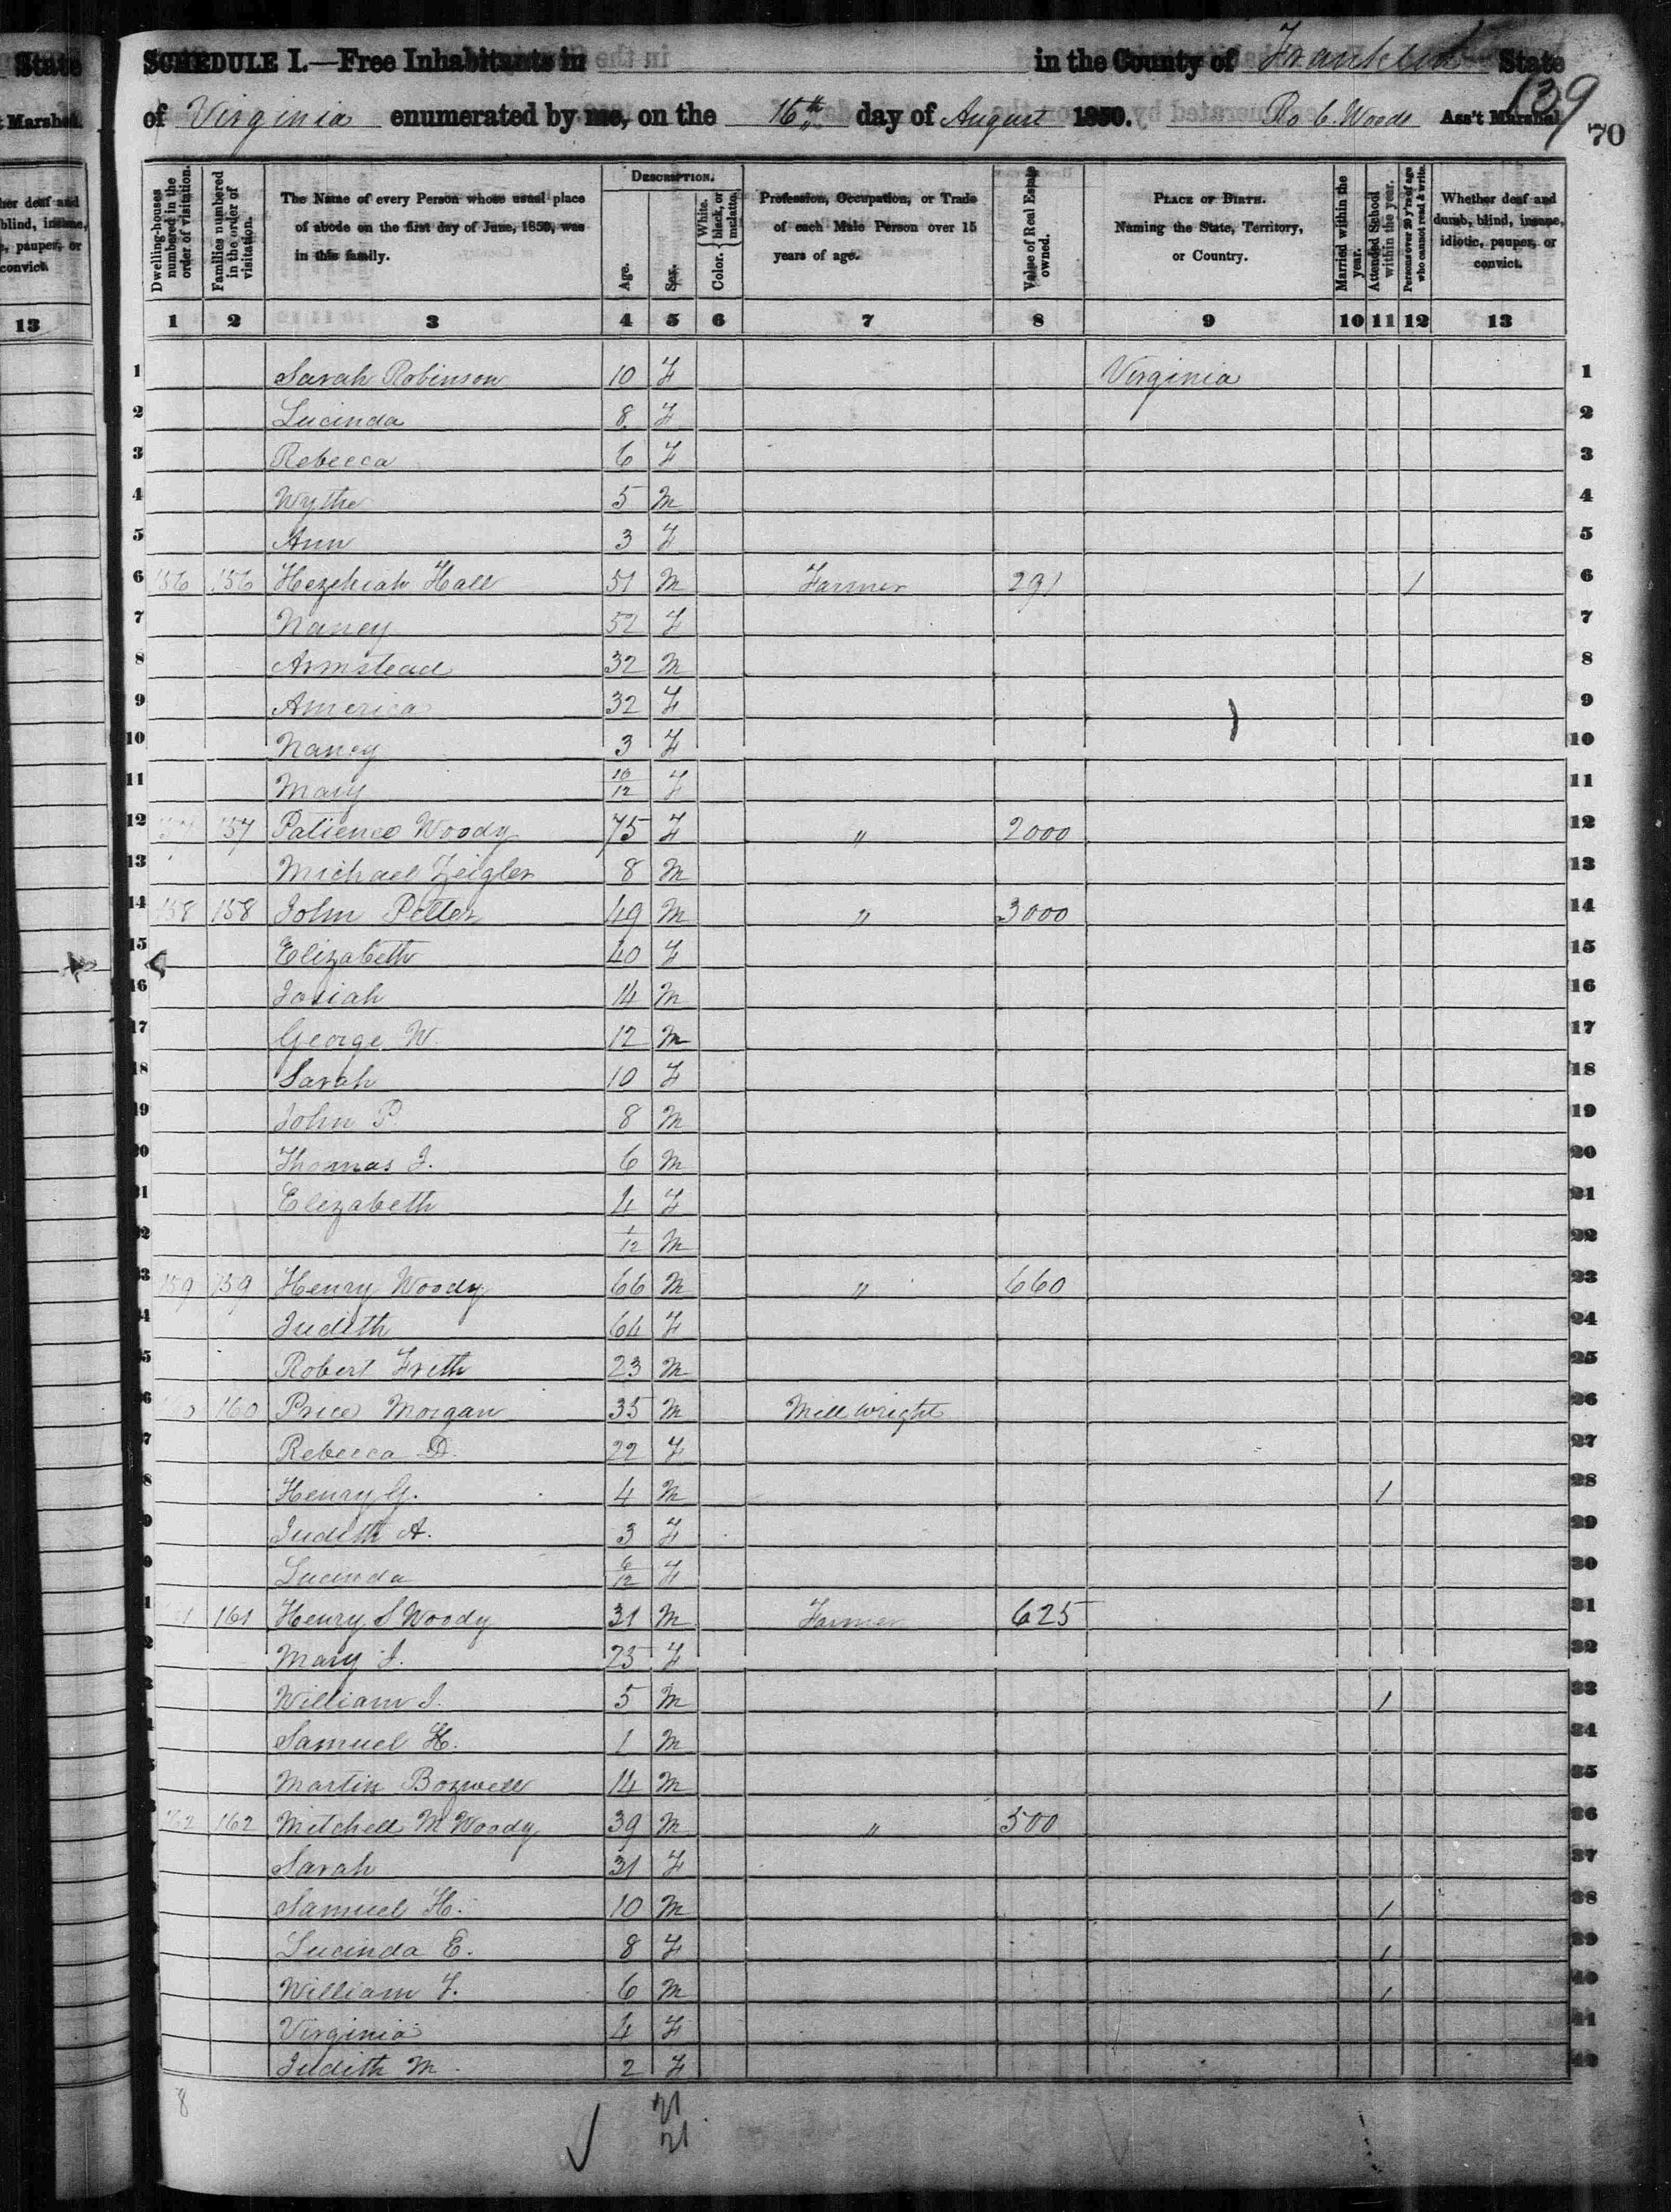 State
t Marshal.
her deaf and
blind, insane,
e, pauper, or
convict.
13
SCHEDULE I.—Free Inhabitants in in the County of Franklin State
of Virginia enumerated by me, on the 16th day of August 1850. Ro C. Woods Ass't Marshal
139
70
Dwelling-houses numbered in the order of visitation.
Families numbered in the order of visitation.
The Name of every Person whose usual place of abode on the first day of June, 1850, was in this family.
Description.
Age.
Sex.
Color. { White, black, or mulatto.
Profession, Occupation, or Trade of each Male Person over 15 years of age.
Value of Real Estate owned.
Place of Birth. Naming the State, Territory, or Country.
Married within the year.
Attended School within the year.
Persons over 20 y'rs of age who cannot read & write.
Whether deaf and dumb, blind, insane, idiotic, pauper, or convict.
1 2 3 4 5 6 7 8 9 10 11 12 13
1 Sarah Robinson 10 F Virginia 1
2 Lucinda 8 F 2
3 Rebecca 6 F 3
4 Wythe 5 M 4
5 Ann 3 F 5
6 156 156 Hezekiah Hall 51 M Farmer 291 1 6
7 Nancy 52 F 7
8 Armstead 32 M 8
9 America 32 F 9
10 Nancy 3 F 10
11 Mary 10/12 F 11
12 157 157 Patience Woody 75 F " 2000 12
13 Michael Zeigler 8 M 13
14 158 158 John Potter 49 M " 3000 14
15 Elizabeth 40 F 15
16 Josiah 14 M 16
17 George W. 12 M 17
18 Sarah 10 F 18
19 John P 8 M 19
20 Thomas J. 6 M 20
21 Elizabeth 4 F 21
22 1/12 M 22
23 159 159 Henry Woody 66 M " 660 23
24 Judith 64 F 24
25 Robert Frith 23 M 25
26 160 160 Price Morgan 35 M Mill wright 26
27 Rebecca D. 22 F 27
28 Henry G. 4 M 1 28
29 Judith A. 3 F 29
30 Lucinda 6/12 F 30
31 161 161 Henry S Woody 31 M Farmer 625 31
32 Mary J. 25 F 32
33 William J. 5 M 1 33
34 Samuel H. 1 M 34
35 Martin Bozwell 14 M 35
36 162 162 Mitchell M Woody 39 M " 500 36
37 Sarah 31 F 37
38 Samuel H. 10 M 1 38
39 Lucinda E. 8 F 1 39
40 William F. 6 M 1 40
41 Virginia 4 F 41
42 Judith M. 2 F 42
8
21
21